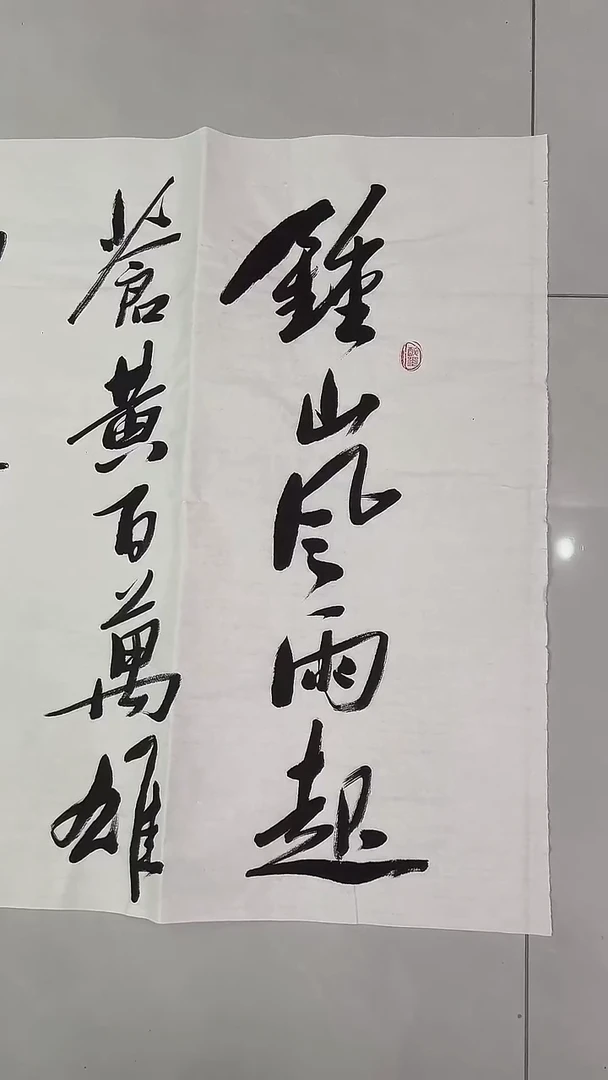 鍾山風雨起
蒼黃百萬雄